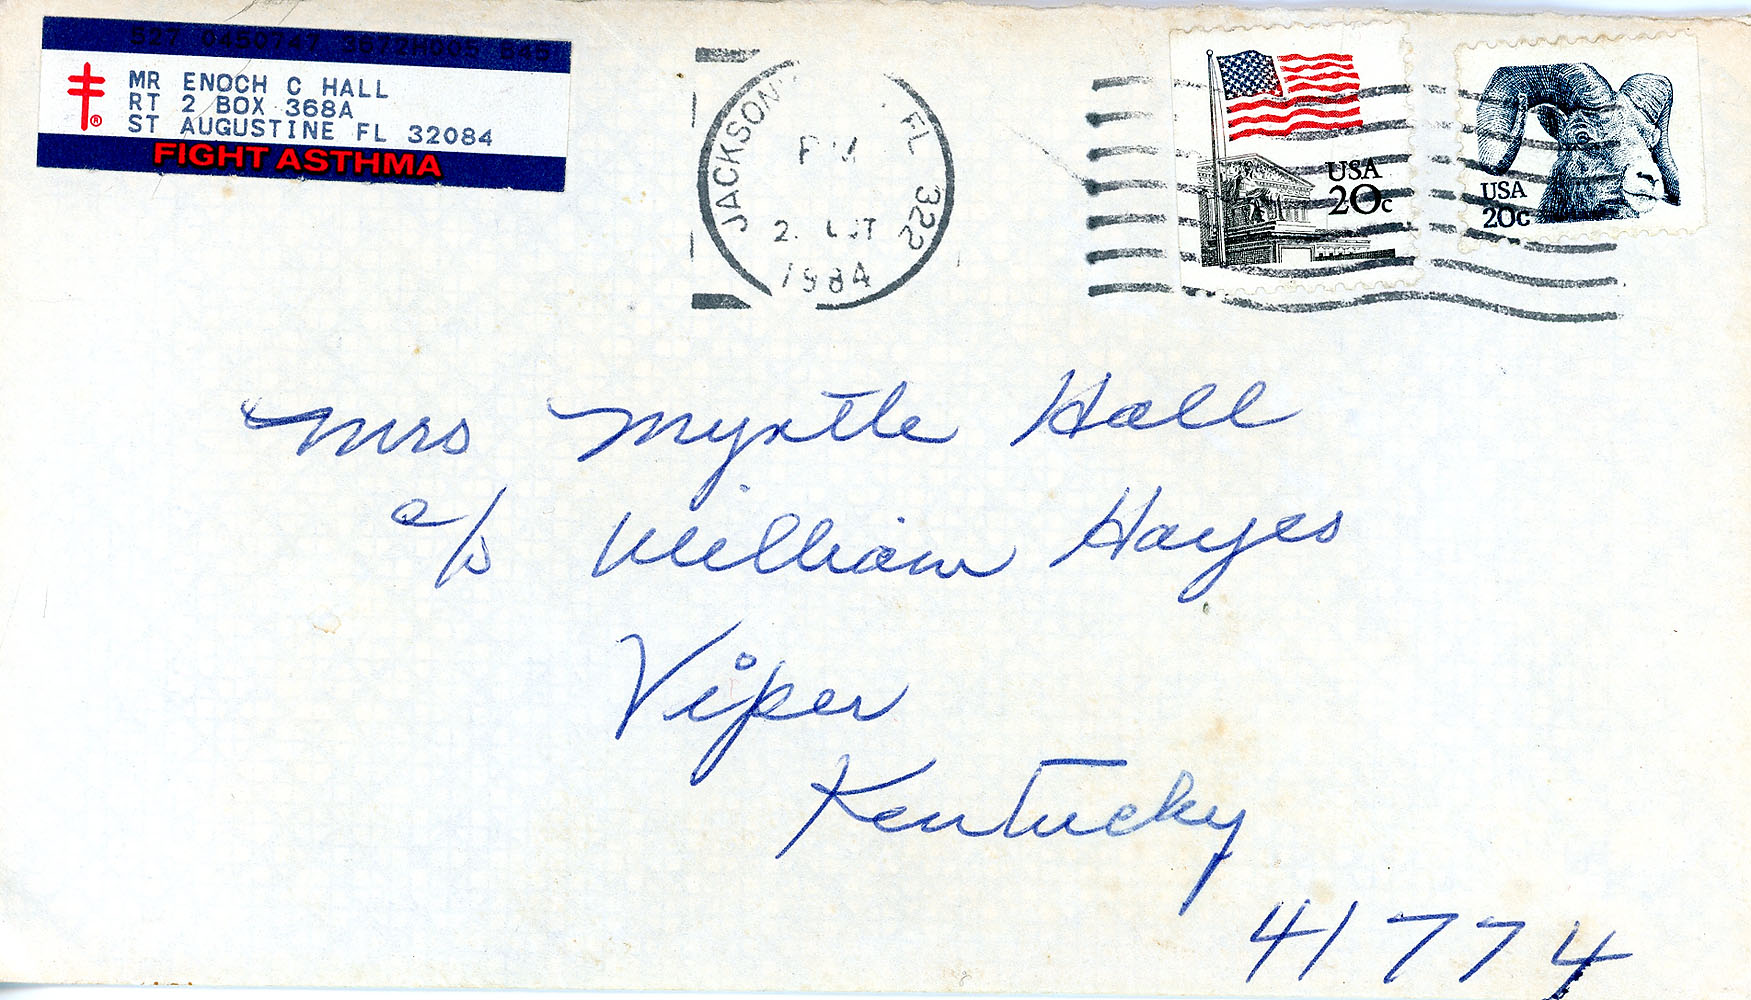 527 0450747 3672H005 845
MR ENOCH C HALL
RT 2 BOX 368A
ST AUGUSTINE FL 32084
FIGHT ASTHMA
JACKSON FL 322
PM
1984
USA
20c
USA
20c
Mrs Myrtle Hall
c/o William Hayes
Viper
Kentucky
41774